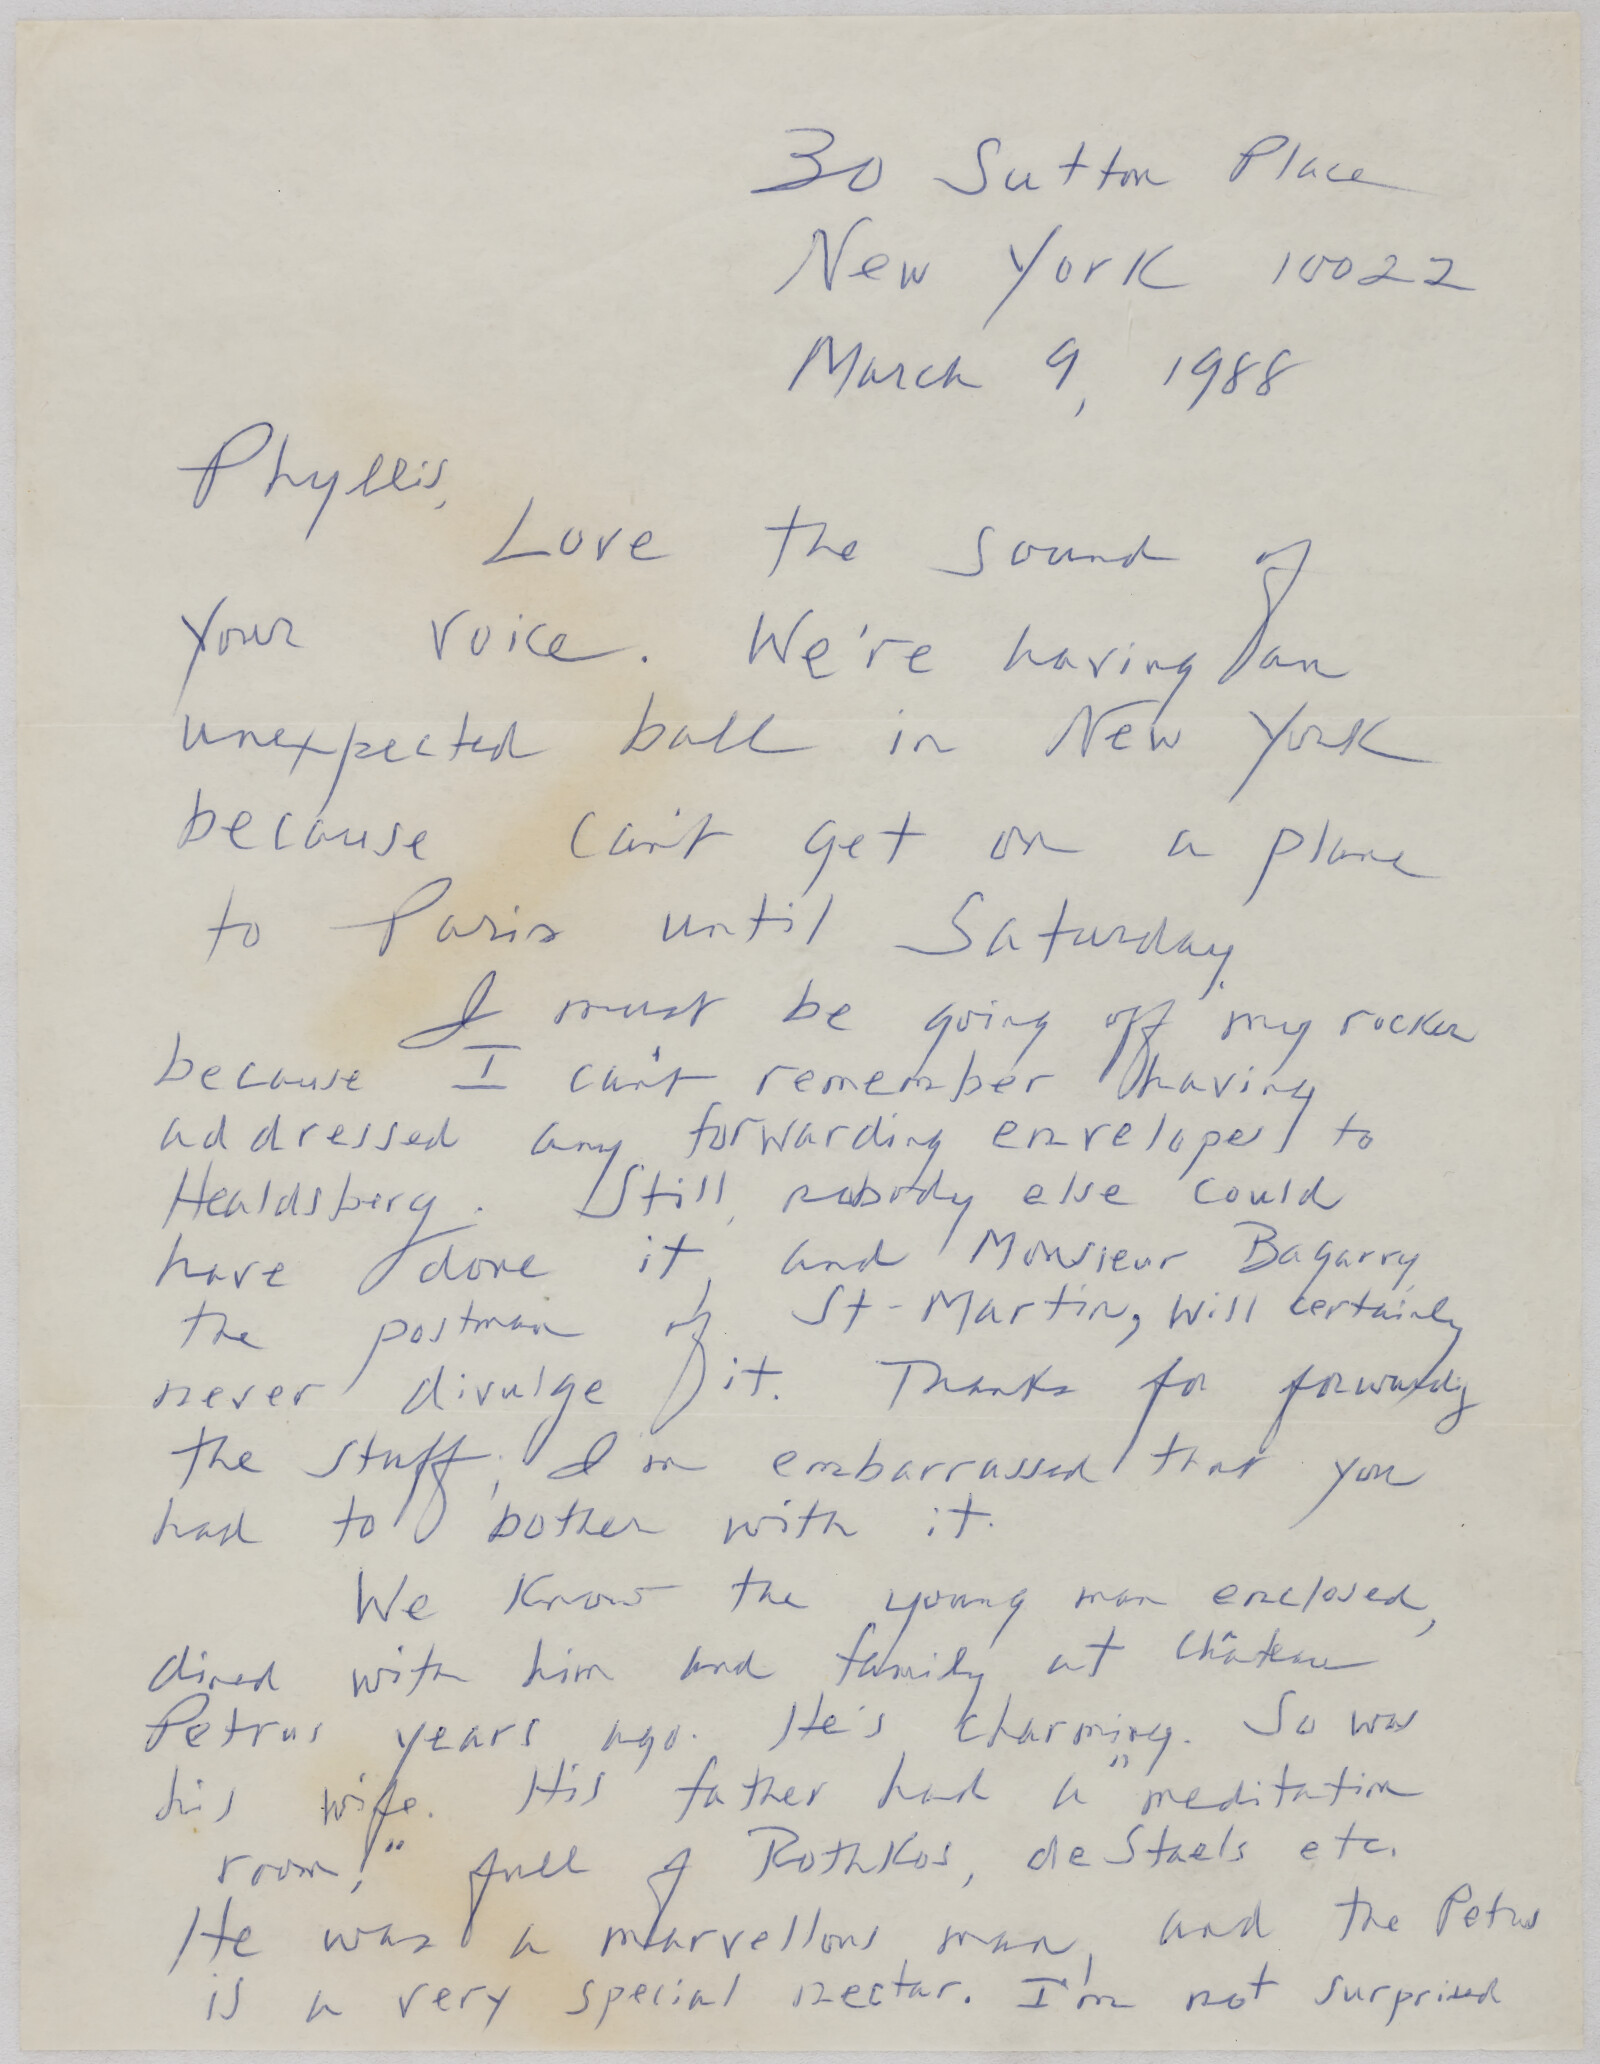 30 Sutton Place
New York 10022
March 9, 1988
Phyllis,
Love the sound of
your voice. We're having an
unexpected ball in New York
because can't get on a plane
to Paris until Saturday.
I must be going off my rocker
because I can't remember having
addressed any forwarding envelopes to
Healdsberg. Still, nobody else could
have done it, and Monsieur Bagarry,
the postman of St-Martin, will certainly
never divulge it. Thanks for forwardg
the stuff; I'm embarrassed that you
had to bother with it.
We know the young man enclosed,
dined with him and family at Château
Petrus years ago. He's charming. So was
his wife. His father had a "meditation
room," full of Rothkos, de Staels etc.
He was a marvellous man, and the Petrus
is a very special nectar. I'm not surprised